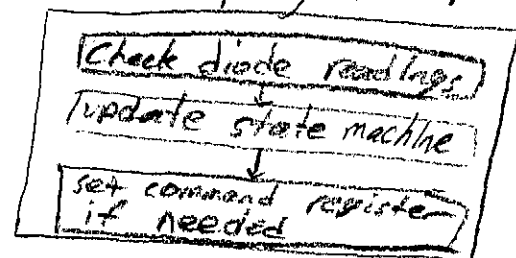 Check diode readings
update state machine
set command register
if needed